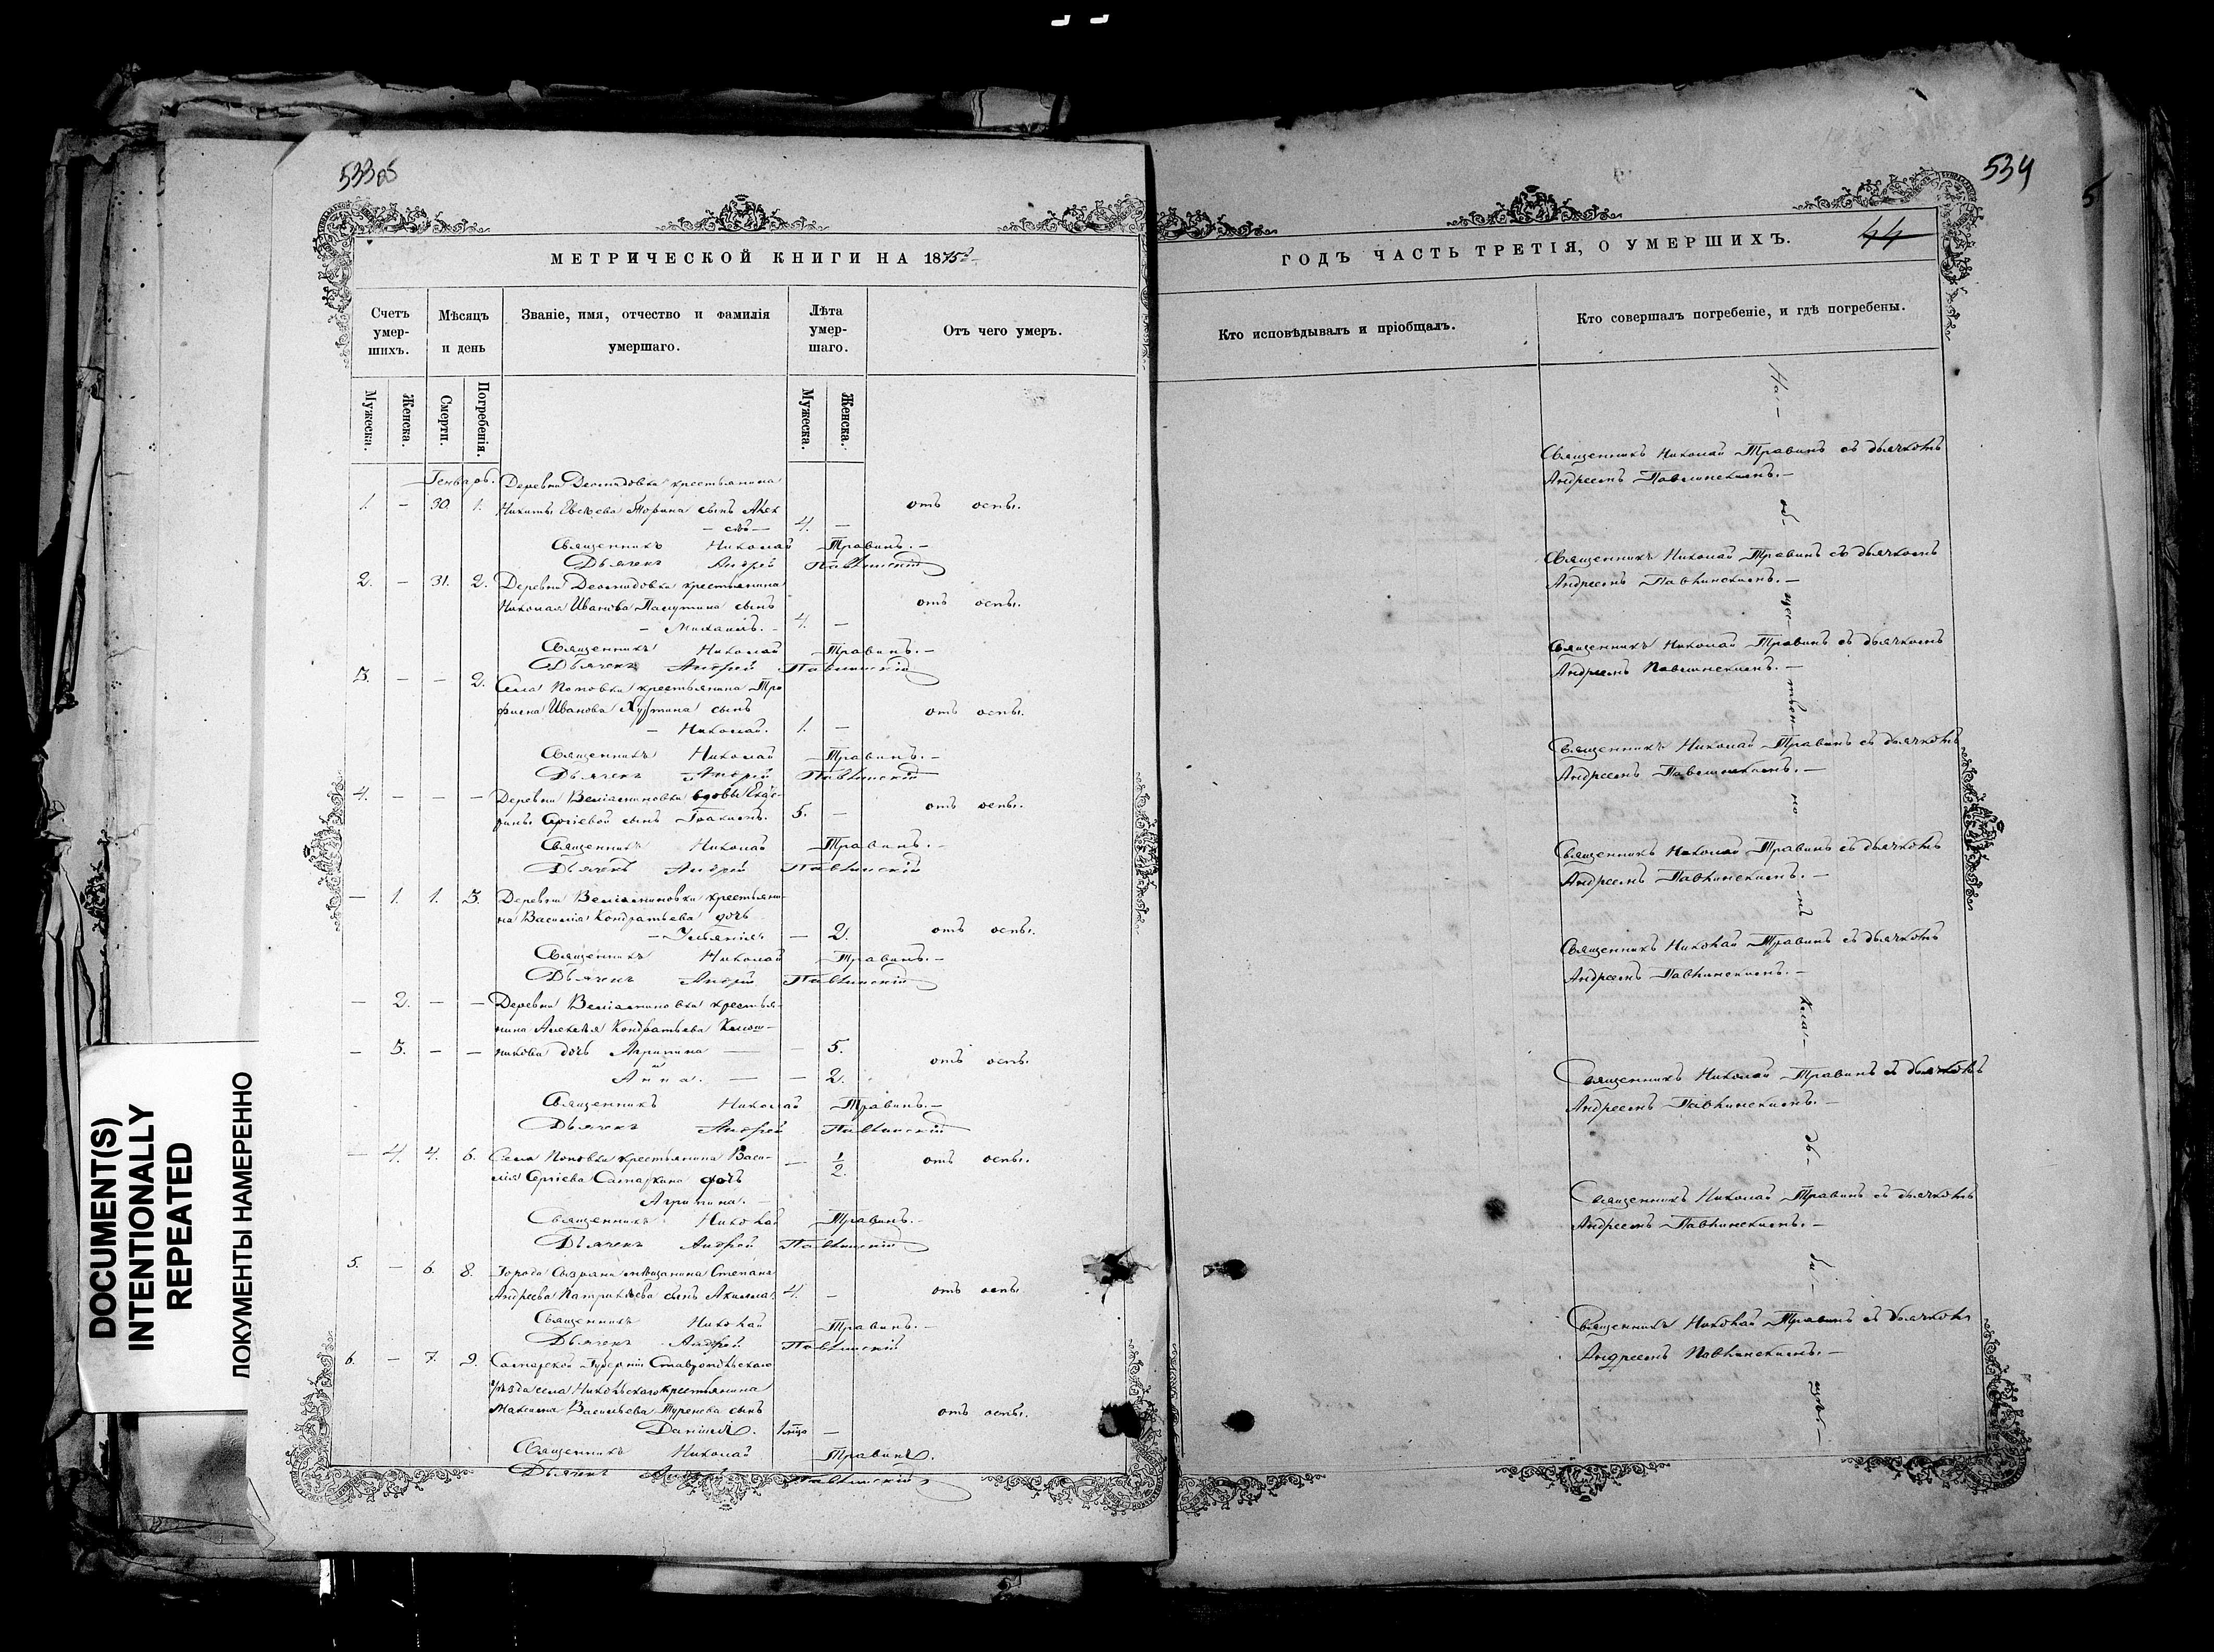 533об
МЕТРИЧЕСКОЙ КНИГИ НА 1875й
Счетъ умер-шихъ.
Мѣсяцъ и день
Званіе, имя, отчество и фамилія умершаго.
Лѣта умер-шаго.
Отъ чего умеръ.
Мужеска.
Женска.
Смерти.
Погребенія.
Мужеска.
Женска.
Генварь. Деревни Демидовки крестьянина
1. — 30. 1. Никиты сынъ Алек
— сѣй — 4. — отъ оспы.
Священникъ Николай Травинъ. —
Дьячекъ Андрей Павлинскій
2. — 31. 2. Деревни Демидовки крестьянина
Николая Иванова сынъ отъ оспы.
— Михаилъ. — 4. —
Священникъ Николай Травинъ. —
Дьячекъ Андрей Павлинскій
3. — — 2. Села Поповки крестьянина Тро
фима Иванова сынъ отъ оспы.
— Николай. 1. —
Священникъ Николай Травинъ. —
Дьячекъ Андрей Павлинскій
4. — — — Деревни вдовы Екате-
рины Сергіевой сынъ 5. — отъ оспы.
Священникъ Николай Травинъ. —
Дьячекъ Андрей Павлинскій
— 1. 1. 3. Деревни крестьяни-
на Василія Кондратьева дочь
— 2. отъ оспы.
Священникъ Николай Травинъ. —
Дьячекъ Андрей Павлинскій
— 2. — — Деревни крестья-
нина Алексѣя Кондратьева
— 3. — — дочь Агрипина — — 5. отъ оспы.
и Анна. — — 2.
Священникъ Николай Травинъ. —
Дьячекъ Андрей Павлинскій
— 4. 4. 6. Села Поповки крестьянина Васи-
лія Сергіева Самаркина дочь — 1/2. отъ оспы.
Агрипина. —
Священникъ Николай Травинъ. —
Дьячекъ Андрей Павлинскій
5. — 6. 8. Города Сызрани мѣщанина Степана
Андреева сынъ 4. — отъ оспы.
Священникъ Николай Травинъ. —
Дьячекъ Андрей Павлинскій
6. — 7. 9. Самарской Губерніи Ставропольскаго
уѣзда села Никольскаго крестьянина
Максима Васильева сынъ отъ оспы.
Даніилъ. —
Священникъ Николай Травинъ.
Дьячекъ Андрей Павлинскій
534
5
44
ГОДЪ ЧАСТЬ ТРЕТІЯ, О УМЕРШИХЪ.
Кто исповѣдывалъ и пріобщалъ.
Кто совершалъ погребеніе, и гдѣ погребены.
Священникъ Николай Травинъ съ дьячкомъ
Андреемъ Павлинскимъ. —
Священникъ Николай Травинъ съ дьячкомъ
Андреемъ Павлинскимъ. —
Священникъ Николай Травинъ съ дьячкомъ
Андреемъ Павлинскимъ. —
Священникъ Николай Травинъ съ дьячкомъ
Андреемъ Павлинскимъ. —
Священникъ Николай Травинъ съ дьячкомъ
Андреемъ Павлинскимъ. —
Священникъ Николай Травинъ съ дьячкомъ
Андреемъ Павлинскимъ. —
Священникъ Николай Травинъ съ дьячкомъ
Андреемъ Павлинскимъ. —
Священникъ Николай Травинъ съ дьячкомъ
Андреемъ Павлинскимъ. —
Священникъ Николай Травинъ съ дьячкомъ
Андреемъ Павлинскимъ. —
На — об- щес- твен- но — мъ клад- — дь- — би- — щѣ. —
DOCUMENT(S)
INTENTIONALLY
REPEATED
ДОКУМЕНТЫ НАМЕРЕННО